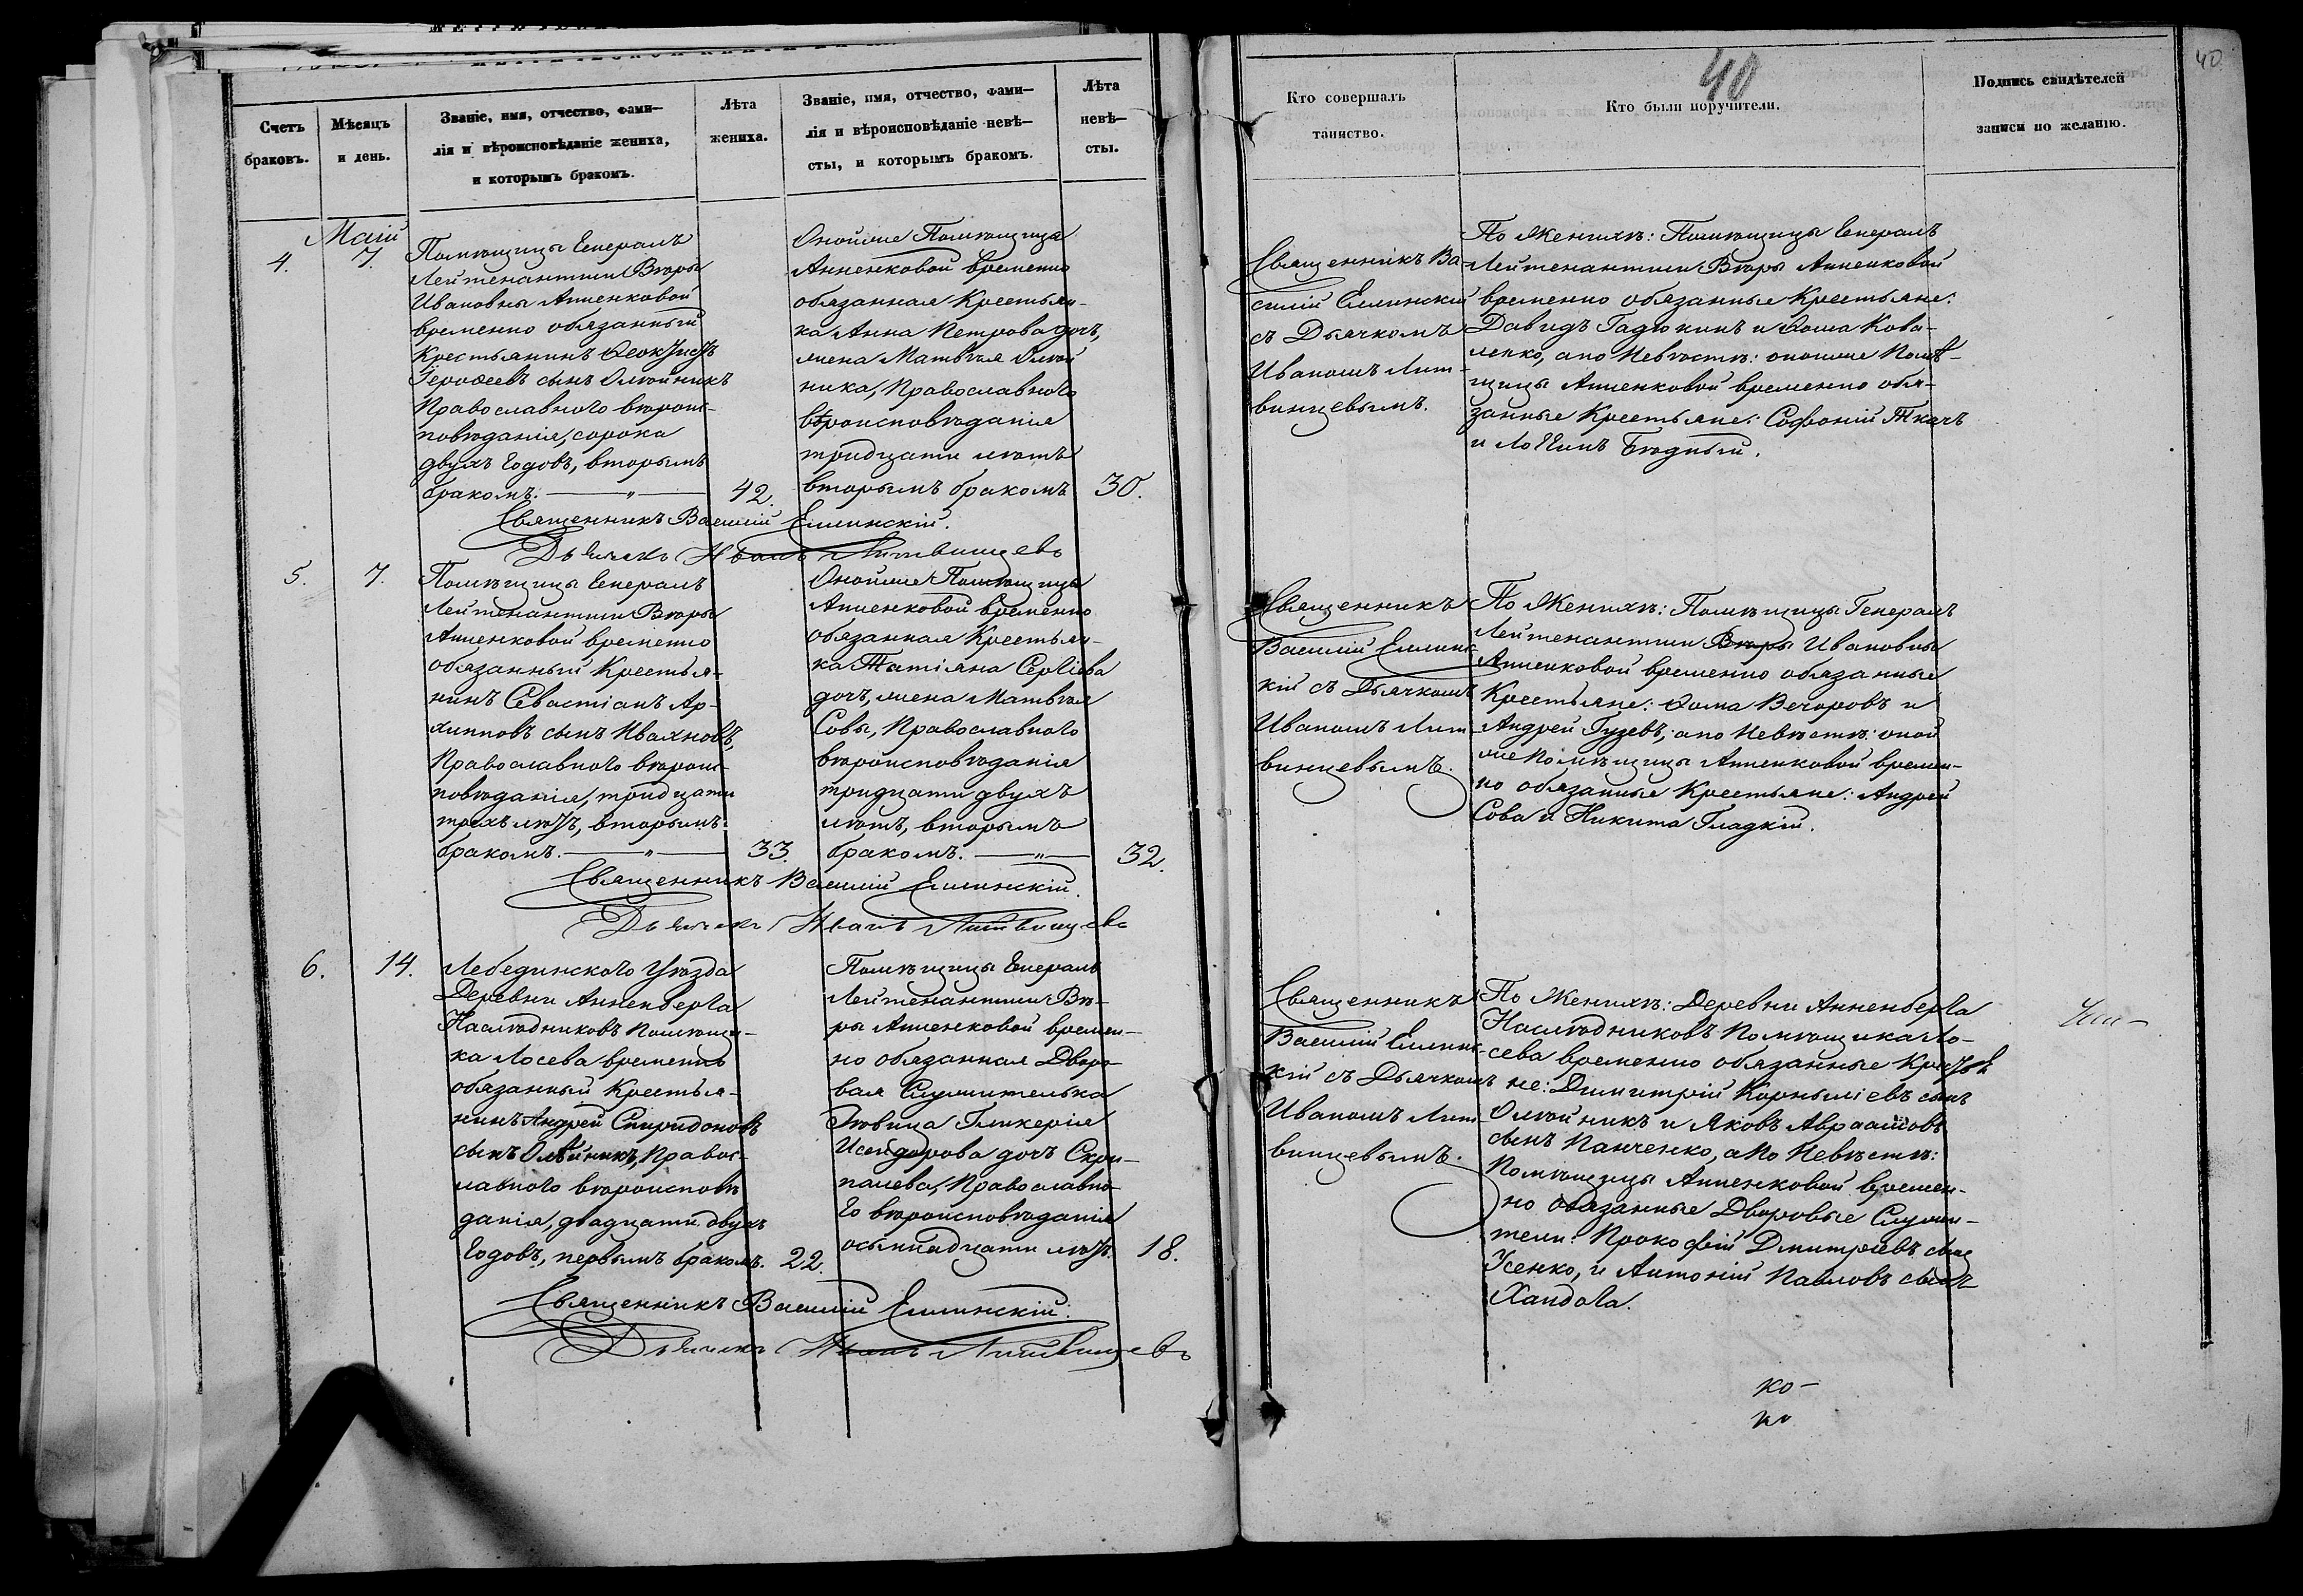 40
40
Счетъ
браковъ.
Мѣсяцъ
и день.
Званіе, имя, отчество, фами—
лія и вѣроисповѣданіе жениха,
и которымъ бракомъ.
Лѣта
жениха.
Званіе, имя, отчество, фами—
лія и вѣроисповѣданіе невѣ—
сты, и которымъ бракомъ.
Лѣта
невѣ—
сты.
Кто совершалъ
таинство.
Кто были поручители.
Подпись свидѣтелей
записи по желанію.
Маій
4.
7.
Помѣщицы Генералъ
Лейтенантши Вѣры
Ивановны Анненковой
временно обязанный
Крестьянинъ Ѳеоктистъ
Іероѳеевъ сынъ Олѣйникъ
Православного вѣроис-
повѣданія, сорока
двухъ годовъ, вторымъ
бракомъ. — " —
42.
Онойже Помѣщицы
Анненковой временно
обязанная Крестьян-
ка Анна Петрова дочь,
жена Матвѣя Олѣй
ника, Православного
вѣроисповѣданія
тридцати лѣтъ
вторымъ бракомъ
30.
Священникъ Ва-
силій Еллинскій
съ Дьячкомъ
Иваномъ Лит-
винцевымъ.
По Женихѣ: Помѣщицы Генералъ
Лейтенантши Вѣры Анненковой
временно обязанные Крестьяне:
Давидъ Гадюкинъ и Ѳома Кова-
ленко, а по Невѣстѣ: онойже Помѣ-
щицы Анненковой временно обя-
занные Крестьяне: Софоній Ткачъ
и Логинъ Бѣдный.
Священникъ Василій Еллинскій.
Дьячекъ Иванъ Литвинцевъ
5.
7.
Помѣщицы Генералъ
Лейтенантши Вѣры
Анненковой временно
обязанный Крестья-
нинъ Севастіанъ Ар-
хиповъ сынъ Ивахновъ,
Православного вѣроис-
повѣданія, тридцати
трехъ лѣтъ, вторымъ
бракомъ. — " —
33.
Онойже Помѣщицы
Анненковой временно
обязанная Крестьян-
ка Татіяна Сергіева
дочь, жена Матвѣя
Совы, Православного
вѣроисповѣданія
тридцати двухъ
лѣтъ, вторымъ
бракомъ. — " —
32.
Священникъ
Василій Еллинс-
кій съ Дьячкомъ
Иваномъ Лит-
винцевымъ.
По Женихѣ: Помѣщицы Генералъ
Лейтенантши Вѣры Ивановны
Анненковой временно обязанные
Крестьяне: Ѳома Вечоровъ и
Андрей Гузевъ, а по Невѣстѣ: оной
же Помѣщицы Анненковой времен-
но обязанные Крестьяне: Андрей
Сова и Никита Гладкій.
Священникъ Василій Еллинскій.
Дьячекъ Иванъ Литвинцевъ
6.
14.
Лебединского Уѣзда
Деревни Анненберга
Наслѣдниковъ Помѣщи-
ка Лосева временно
обязанный Крестья-
нинъ Андрей Спиридоновъ
сынъ Олѣйникъ, Правос-
лавного вѣроисповѣ
данія, двадцати двухъ
годовъ, первымъ бракомъ.
22.
Помѣщицы Генералъ
Лейтенантши Вѣ-
ры Анненковой времен-
но обязанная Дворо-
вая Служителька
Дѣвица Гликерія
Исейдорова дочь Скри-
палева, Православно-
го вѣроисповѣданія
осьмнадцати лѣтъ.
18.
Священникъ
Василій Еллинс-
кій съ Дьячкомъ
Иваномъ Лит-
винцевымъ.
По Женихѣ: Деревни Анненберга
Наслѣдниковъ Помѣщика Ло-
сева временно обязанные Крестья
не: Димитрій Корниліевъ сынъ
Олѣйникъ и Яковъ Авраамовъ
сынъ Панченко, а по Невѣстѣ:
Помѣщицы Анненковой времен-
но обязанные Дворовые Служи-
тели: Прокофій Дмитріевъ сынъ
Усенко, и Антоній Павловъ сынъ
Хандога.
Священникъ Василій Еллинскій.
Дьячекъ Иванъ Литвинцевъ
ко-